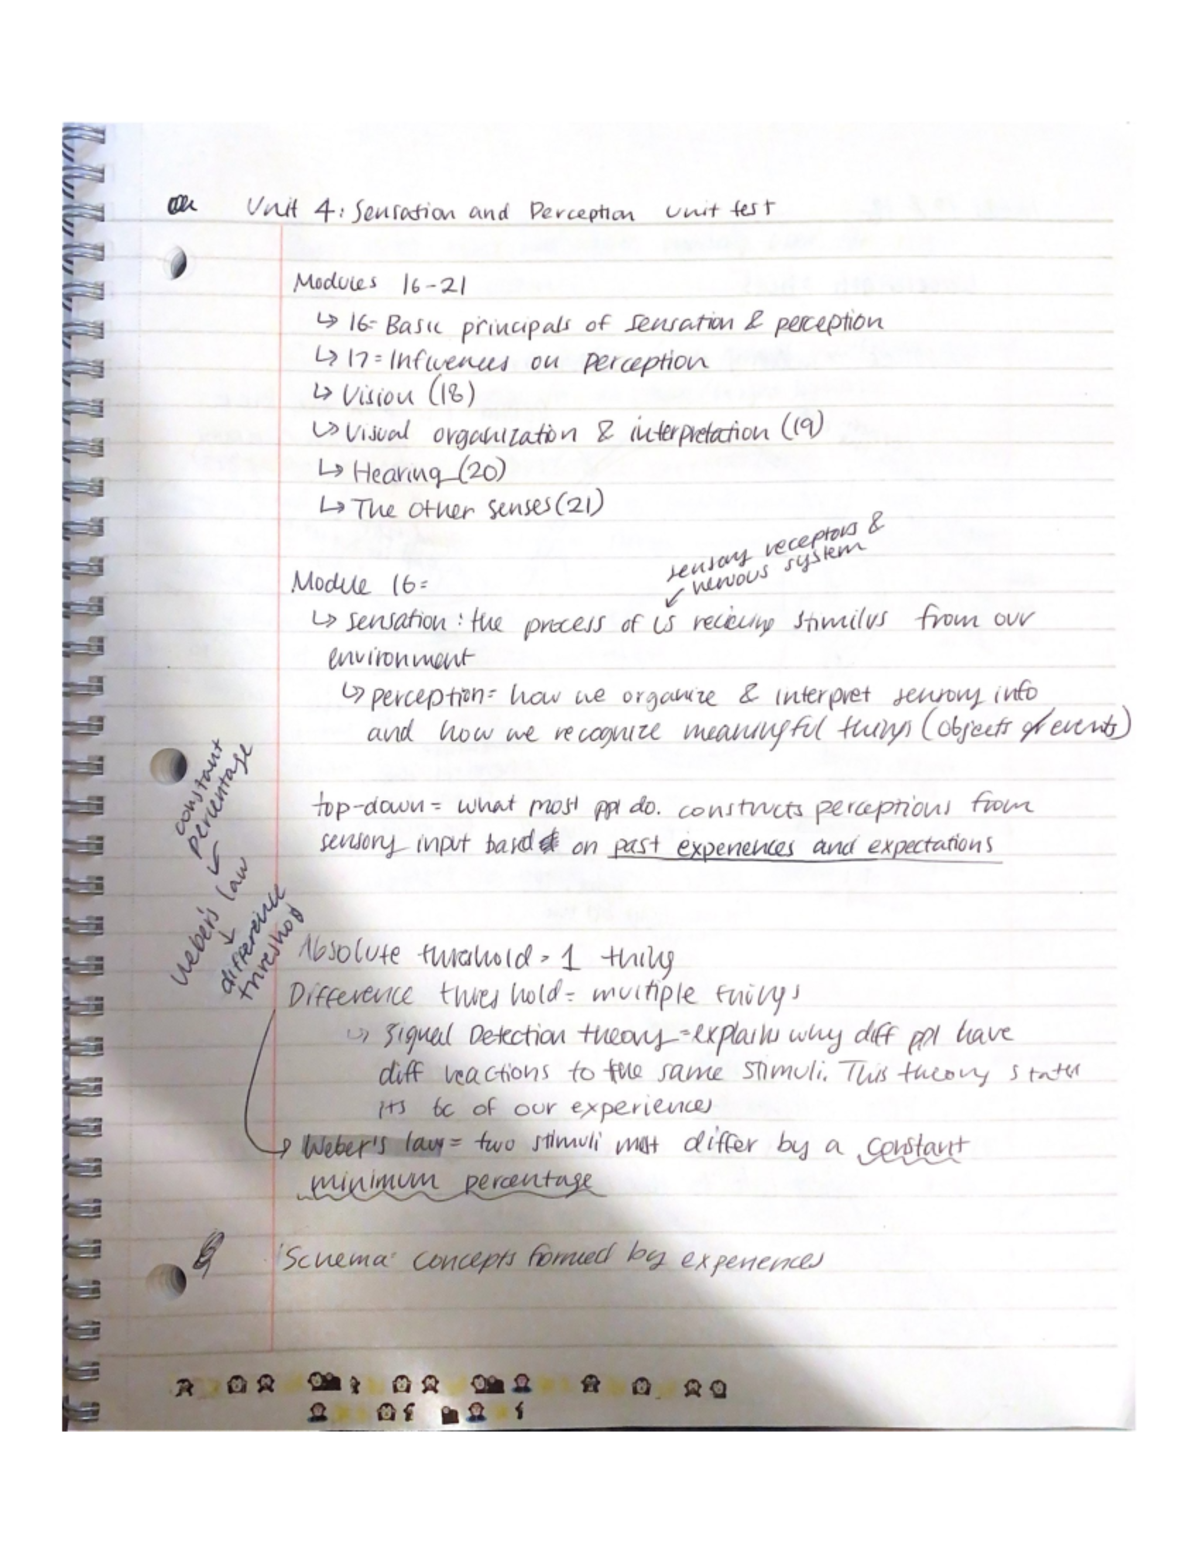 Unit 4: Sensation and Perception unit test
Modules 16-21
↳ 16= Basic principals of sensation & perception
↳ 17= Influences on perception
↳ Vision (18)
↳ Visual organization & interpretation (19)
↳ Hearing (20)
↳ The other senses (21)
sensory receptors &
nervous system
Module 16=
↳ sensation: the process of us recieving stimilus from our
environment
↳ perception= how we organize & interpret sensory info
and how we recognize meaningful things (objects of events)
constant
percentage
top-down= what most ppl do. constructs perceptions from
sensory input based on past experiences and expectations
Weber's law
difference
threshold
Absolute threshold= 1 thing
Difference threshold= multiple things
↳ Signal Detection theory= explains why diff ppl have
diff reactions to the same stimuli. This theory states
its bc of our experiences
→ Weber's law= two stimuli must differ by a constant
minimum percentage
Schema: concepts formed by experiences